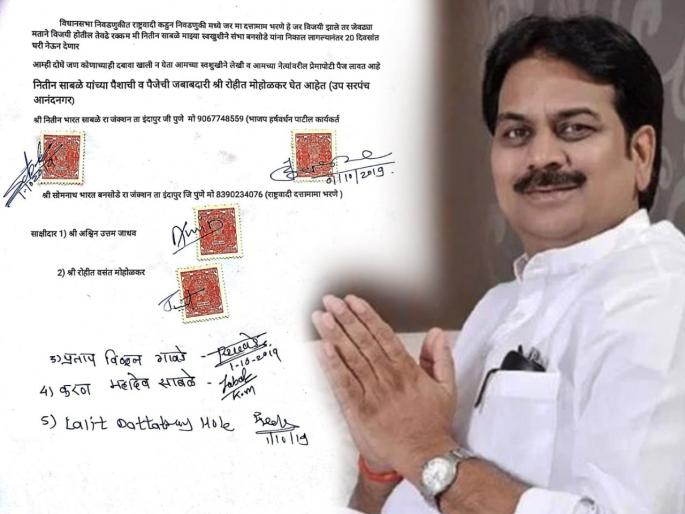 विधानसभा निवडणुकीत राष्ट्रवादी कडुन निवडणुकी मध्ये जर मा दत्तामाम भरणे हे जर विजयी झाले तर जेवढ्या
मताने विजयी होतील तेवढे रक्कम मी नितीन साबळे माझ्या स्वखुशीने संभा बनसोडे यांना निकाल लागल्यानंतर 20 दिवसांत
घरी नेऊन देणार
आम्ही दोघे जण कोणाच्याही दबावा खाली न येता आमच्या स्वखुशीने लेखी व आमच्या नेत्यांवरील प्रेमापोटी पैज लावत आहे
नितीन साबळे यांच्या पैशाची व पैजेची जबाबदारी श्री रोहीत मोहोळकर घेत आहेत (उप सरपंच
आनंदनगर)
श्री नितीन भारत साबळे रा जंक्शन ता इंदापुर जी पुणे मो 9067748559 (भाजप हर्षवर्धन पाटील कार्यकर्त
1-10-2019
01/10/2019
श्री सोमनाथ भारत बनसोडे रा जंक्शन ता इंदापुर जि पुणे मो 8390234076 (राष्ट्रवादी दत्तामामा भरणे )
साक्षीदार 1) श्री अश्विन उत्तम जाधव
2) श्री रोहीत वसंत मोहोळकर
3) प्रताप विठ्ठल गवळे
1-10-2019
4) करण महादेव साबळे
K.M
5) Lalit Dattatray Hole
1/10/19